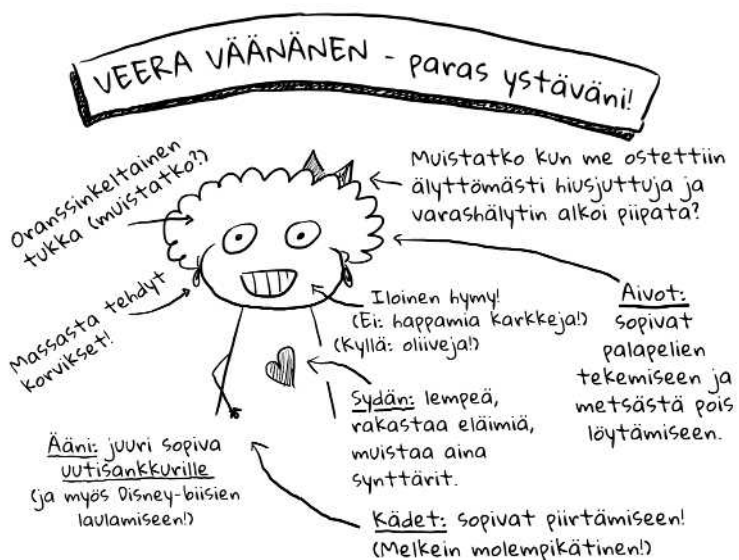 VEERA VÄÄNÄNEN - paras ystäväni!
Oranssinkeltainen
tukka (muistatko?)
Muistatko kun me ostettiin
älyttömästi hiusjuttuja ja
varashälytin alkoi piipata?
Massasta tehdyt
korvikset!
Iloinen hymy!
(Ei: happamia karkkeja!)
(Kyllä: oliiveja!)
Aivot:
sopivat
palapelien
tekemiseen ja
metsästä pois
löytämiseen.
Sydän: lempeä,
rakastaa eläimiä,
muistaa aina
synttärit.
Ääni: juuri sopiva
uutisankkurille
(ja myös Disney-biisien
laulamiseen!)
Kädet: sopivat piirtämiseen!
(Melkein molempikätinen!)